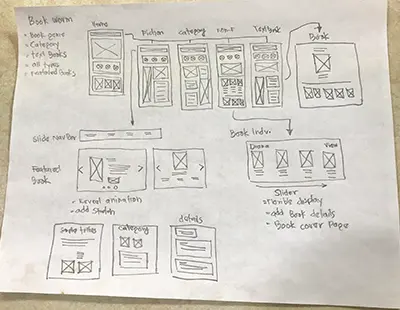 Book worm
• Book genre
• Category
• Text Books
• all types
• Featured Books
Home
Fiction
Category
Text Book
Book
Slide NavBar
Featured
Book
• Reveal animation
• add Sketch
Book Indv.
View
Slider
display
• add Book details
• Book cover Page
Category
details